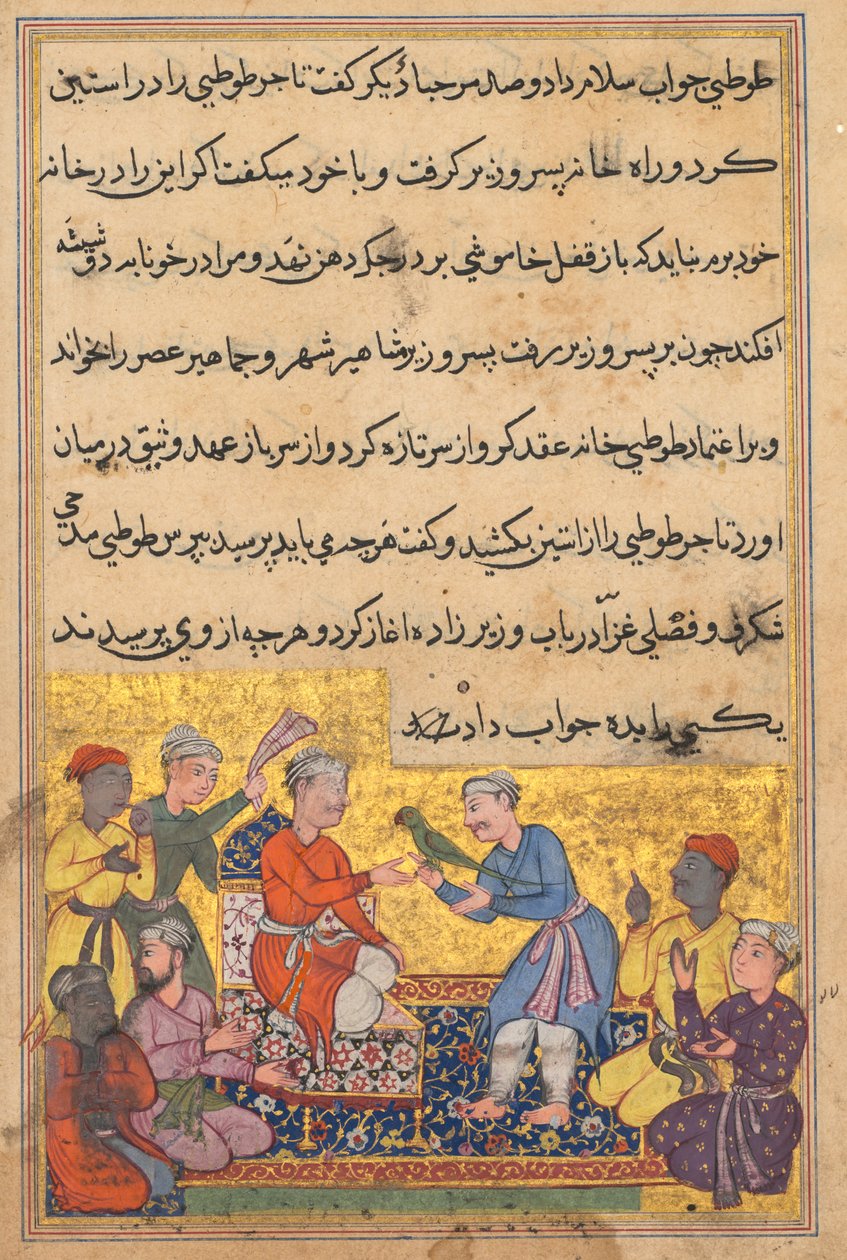 طوطیي جواب سلام داد و صد مرحبا دیکر کفت تاجر طوطیي را در استین
کرد و راه خانه پسر وزیر کرفت و با خود میکفت اکر این را در خانه
خود برم نباید که باز قفل خاموشي بر درجک دهن نهد و مرا در خونابه شیشه
افکند چون بر پسر وزیر رفت پسر وزیر مشاهیر شهر و جماهیر عصر را بخواند
و بر اعتماد طوطیي خانه عقد کرو از سر تازه کرد و از سر باز عهد وثیق در میان
اورد تاجر طوطیي را از استین بکشید و کفت هرچه مي باید پرسید بپرس طوطیي مدحي
شکرف و فصلي غرّا در باب وزیر زاده اغاز کرد و هرچه از وي پرسیدند
یکي را ده جواب داد